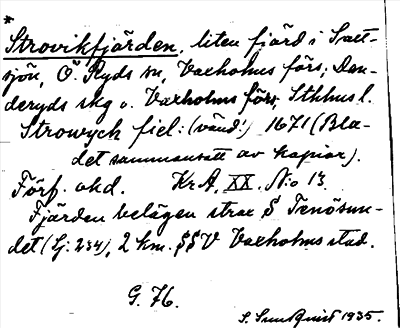 *
Strovikfjärden, liten fjärd i Salt-
sjön, Ö. Ryds sn, Vaxholms förs., Dan-
deryds skg o. Vaxholms förs, Sthlms l.
Strowyck fiel: (vänd!) 1671 (Bla-
det sammansatt av kopior).
Förf. okd. KrA, XX. No 13.
Fjärden belägen strax S Trenösun-
det (Lj: 234), 2 km. SSV Vaxholms stad.
G. 76.
S. Sundquist 1935.